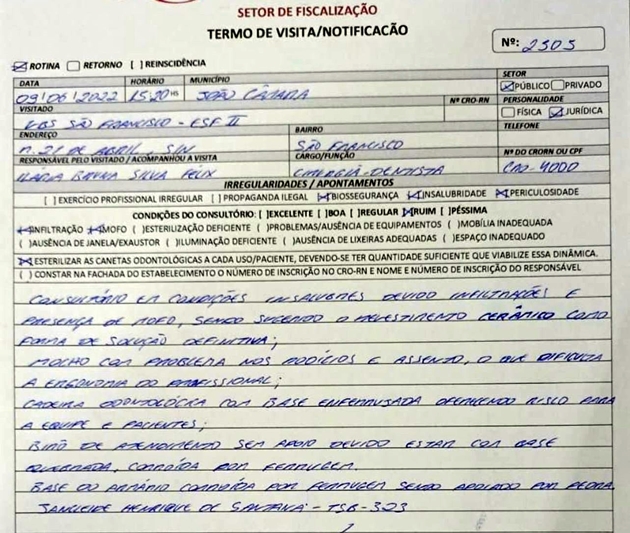 SETOR DE FISCALIZAÇÃO
TERMO DE VISITA/NOTIFICACÃO
Nº: 2305
[X] ROTINA [ ] RETORNO [ ] REINSCIDÊNCIA
DATA HORÁRIO MUNICÍPIO SETOR
09/06/2022 15:20 HS JOÃO CÂMARA [X] PÚBLICO [ ] PRIVADO
VISITADO Nº CRO-RN PERSONALIDADE
UBS SÃO FRANCISCO - ESF II [ ] FÍSICA [X] JURÍDICA
ENDEREÇO BAIRRO TELEFONE
R. 21 DE ABRIL, S/N SÃO FRANCISCO
RESPONSÁVEL PELO VISITADO / ACOMPANHOU A VISITA CARGO/FUNÇÃO Nº DO CRORN OU CPF
BRUNA SILVA FÉLIX CIRURGIÃ-DENTISTA CRO-4000
IRREGULARIDADES / APONTAMENTOS
[ ] EXERCÍCIO PROFISSIONAL IRREGULAR [ ] PROPAGANDA ILEGAL [X] BIOSSEGURANÇA [X] INSALUBRIDADE [X] PERICULOSIDADE
CONDIÇÕES DO CONSULTÓRIO: [ ] EXCELENTE [ ] BOA [ ] REGULAR [X] RUIM [ ] PÉSSIMA
(X) INFILTRAÇÃO (X) MOFO ( ) ESTERILIZAÇÃO DEFICIENTE ( ) PROBLEMAS/AUSÊNCIA DE EQUIPAMENTOS ( ) MOBÍLIA INADEQUADA
( ) AUSÊNCIA DE JANELA/EXAUSTOR ( ) ILUMINAÇÃO DEFICIENTE ( ) AUSÊNCIA DE LIXEIRAS ADEQUADAS ( ) ESPAÇO INADEQUADO
(X) ESTERILIZAR AS CANETAS ODONTOLÓGICAS A CADA USO/PACIENTE, DEVENDO-SE TER QUANTIDADE SUFICIENTE QUE VIABILIZE ESSA DINÂMICA.
( ) CONSTAR NA FACHADA DO ESTABELECIMENTO O NÚMERO DE INSCRIÇÃO NO CRO-RN E NOME E NÚMERO DE INSCRIÇÃO DO RESPONSÁVEL
CONSULTÓRIO EM CONDIÇÕES INSALUBRES DEVIDO INFILTRAÇÕES E
PRESENÇA DE MOFO, SENDO SUGERIDO O REVESTIMENTO CERÂMICO COMO
FORMA DE SOLUÇÃO DEFINITIVA;
MOCHO COM PROBLEMA NOS RODÍCIOS E ASSENTO, O QUE DIFICULTA
A ERGONOMIA DO PROFISSIONAL;
CADEIRA ODONTOLÓGICA COM BASE ENFERRUJADA OFERECENDO RISCO PARA
A EQUIPE E PACIENTES;
BIRÔ DE ATENDIMENTO SEM APOIO DEVIDO ESTAR COM BASE
QUEBRADA, CORROÍDA POR FERRUGEM.
BASE DO ARMÁRIO CORROÍDA POR FERRUGEM SENDO APOIADO POR PEDRA.
JANCLEIDE HENRIQUE DE SANTANA - TSB-323